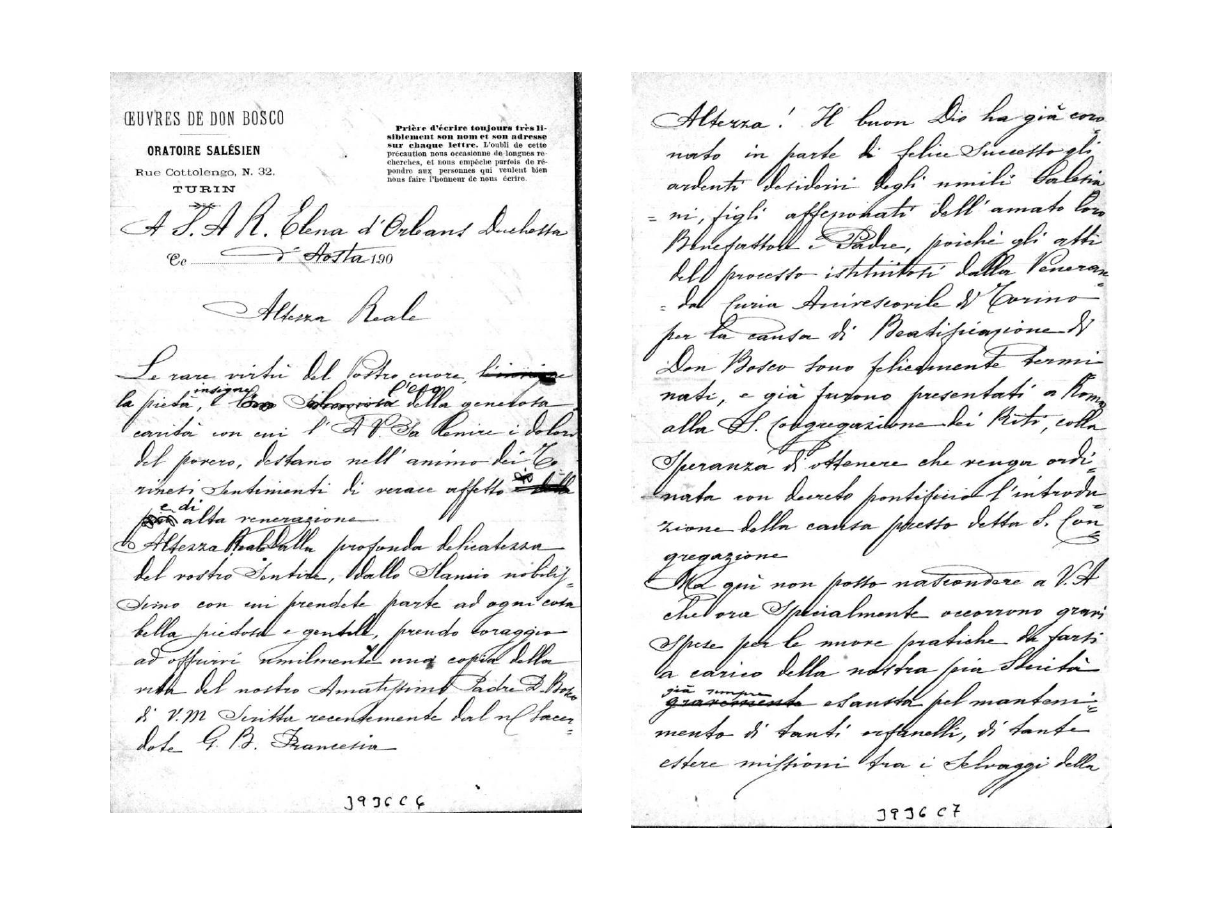 ŒUVRES DE DON BOSCO
ORATOIRE SALÉSIEN
Rue Cottolengo, N. 32.
TURIN
Prière d'écrire toujours très li-
siblement son nom et son adresse
sur chaque lettre. L'oubli de cette
précaution nous occasionne de longues re-
cherches, et nous empêche parfois de ré-
pondre aux personnes qui veulent bien
nous faire l'honneur de nous écrire.
A S. A R. Elena d'Orleans Duchessa
Ce d'Aosta 190
Altezza Reale
Le rare virtù del Vostro cuore,
insigne l'eco
la pietà, della generosa
carità con cui l'A V. Sa lenire i dolori
del povero, destano nell'animo dei To-
rinesi sentimenti di verace affetto
e di
alta venerazione
Altezza Reale Dalla profonda delicatezza
del vostro Sentire, dallo Slancio nobilis=
simo con cui prendete parte ad ogni cosa
bella pietosa e gentile, prendo coraggio
ad offrirvi umilmente una copia della
vita del nostro Amatissimo Padre D. Bosco
di V. M Scritta recentemente dal Sacer=
dote G. B. Francesia
3936 C 6
Altezza! Il buon Dio ha già coro
nato in parte di felice Successo gli
ardenti desiderii degli umili Salesia
= ni, figli affezionati dell'amato loro
Benefattore e Padre, poichè gli atti
del processo istituitosi dalla Veneran
= da Curia Arcivescovile di Torino
per la causa di Beatificazione di
Don Bosco sono felicemente termi
nati, e già furono presentati a Roma
alla S. Congregazione dei Riti, colla
Speranza di ottenere che venga ordi=
nata con decreto pontificio l'introdu
zione della causa presso detta S. Con
gregazione
Ma qui non posso nascondere a V. A
che ora Specialmente occorrono gravi
Spese per le nuove pratiche da farsi
a carico della nostra pia Società
già sempre
gravemente esausta pel manteni=
mento di tanti orfanelli, di tante
estere missioni tra i Selvaggi della
3936 C7